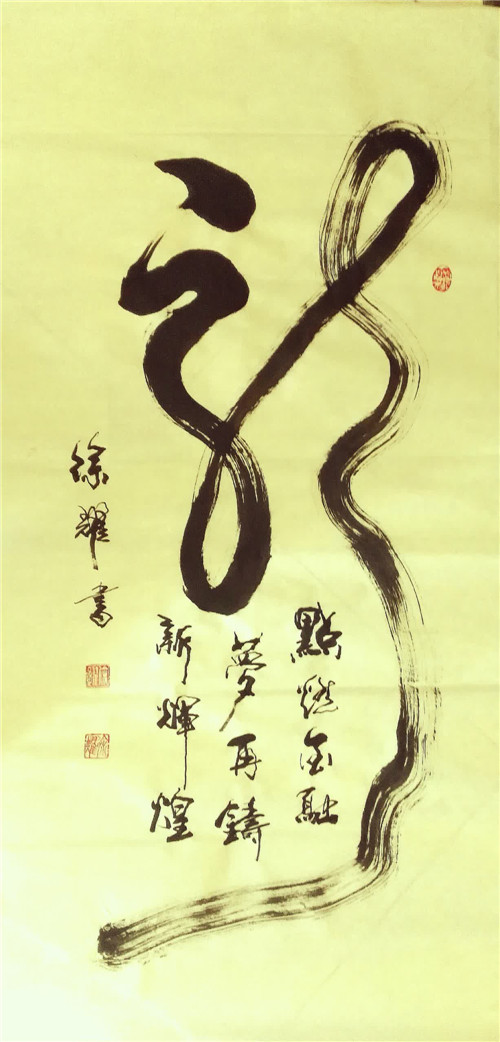 龍
點燃金融
夢再鑄
新輝煌
徐耀書